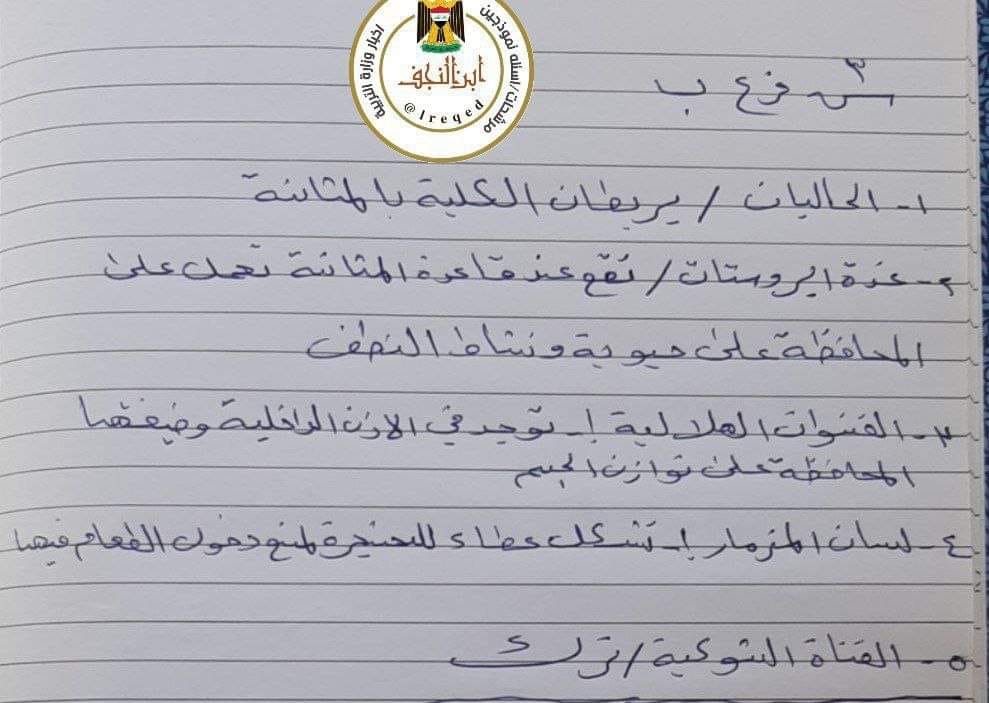 اخبار وزارة التربية
مرشحات/اسئلة نموذجين
ابن النجف
@Ireqed
س٣ فرع ب
١- الحالبان / يربطان الكلية بالمثانة
٢- غدة البروستات / تقع عند قاعدة المثانة تعمل على
المحافظة على حيوية ونشاط النطف
٣- القنوات الهلالية /- توجد في الاذن الداخلية وضيفتها
المحافظة على توازن الجسم
٤- لسان المزمار /- تشكل غطاء للحنجرة لمنع دخول الطعام فيها
٥- القناة الشوكية / ترك